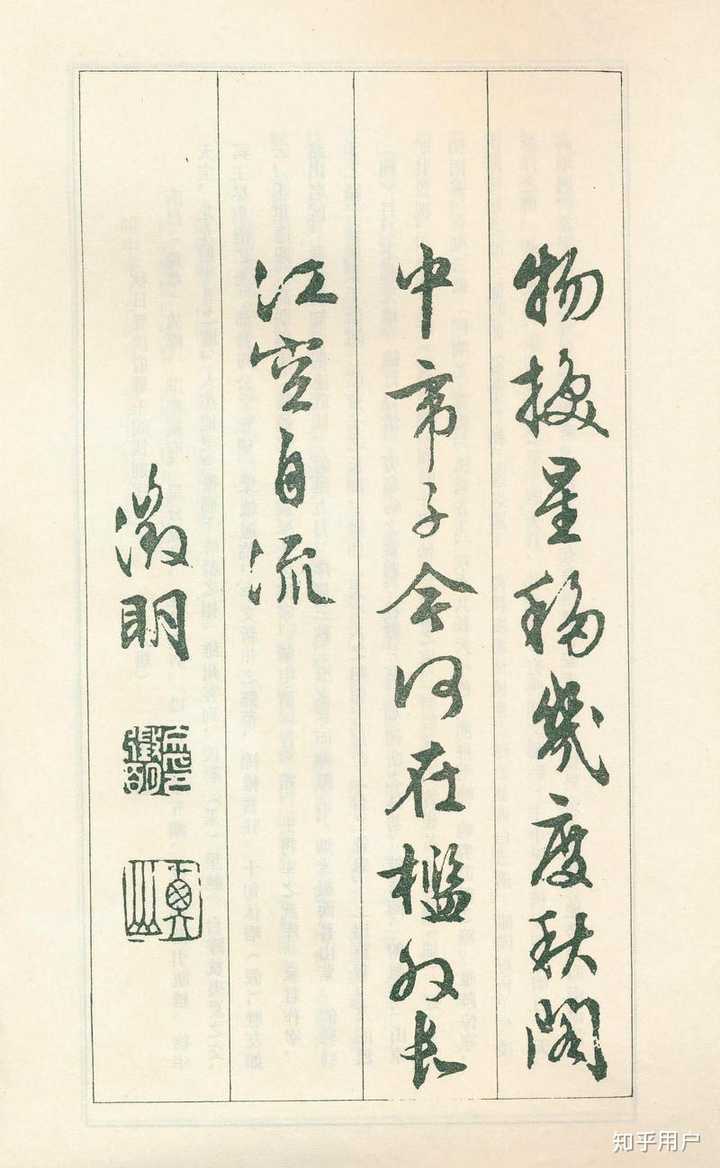 物換星移幾度秋閣
中帝子今何在檻外長
江空自流
徵明
知乎用户